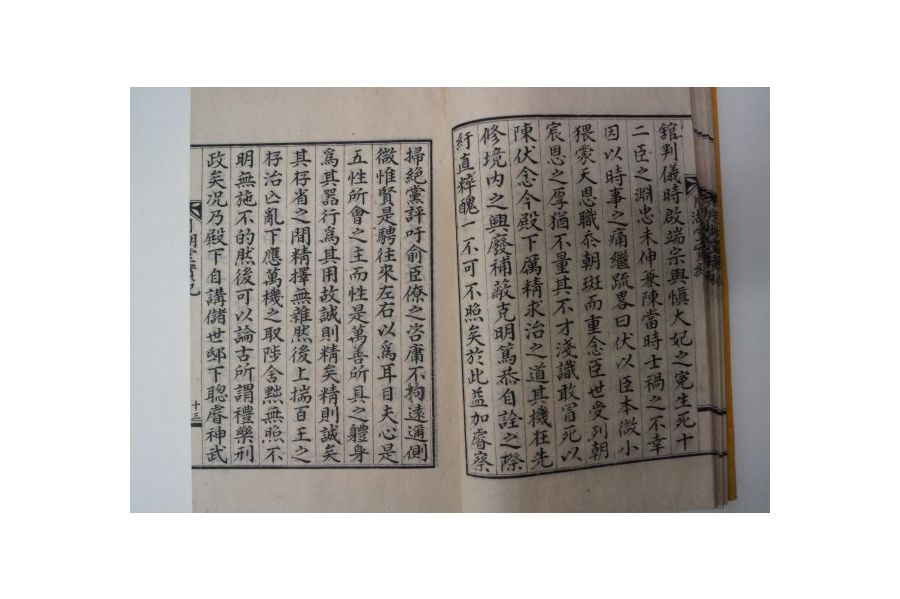 舘判儀時啟端宗與愼大妃之寃生死十
二臣之淵忠未伸兼陳當時士禍之不幸
因以時事之痛繼疏畧曰伏以臣本微小
猥蒙天恩職忝朝班而重念臣世受列朝
宸恩之厚猶不量其不才淺識敢冒死以
陳伏念今殿下厲精求治之道其機在先
修境內之興廢補蔽克明篤恭自詮之際
紆直粹醜一不可不照矣於此益加睿察
掃絕黨評吁俞臣僚之咨庸不拘遠邇側
微惟賢是騁往來左右以爲耳目夫心是
五性所會之主而性是萬善所具之軆身
爲其器行爲其用故誠則精矣精則誠矣
其存省之間精擇無雜然後上揣百王之
存治亡亂下應萬機之取陟舍黜無照不
明無施不的然後可以論古所謂禮樂刑
政矣况乃殿下自講儲世邸下聰睿神武
十三